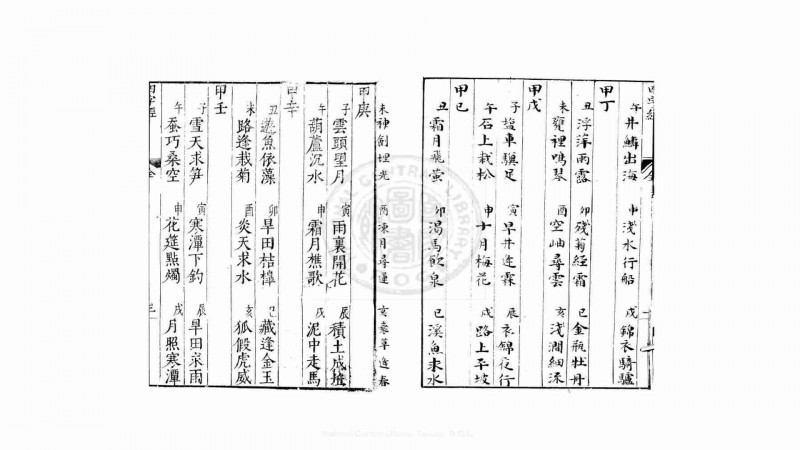 午井鱗出海 申淺水行船 戌錦衣騎驢
甲丁
丑浮萍雨露 卯殘菊經霜 巳金瓶牡丹
未甕裡鳴琴 酉空岫尋雲 亥淺澗細流
甲戊
子鹽車驥足 寅旱井逢霖 辰衣錦夜行
午石上栽松 申十月梅花 戌路上平坡
甲巳
丑霜月飛螢 卯渴馬飲泉 巳溪魚未水
未神劍埋光 酉凍月尋蓮 亥衰草逢春
甲庚
子雲頭望月 寅雨裏開花 辰積土成墻
午葫蘆沉水 申霜月樵歌 戌泥中走馬
甲辛
丑遊魚依藻 卯旱田桔槹 巳藏逢金玉
未路逢栽菊 酉炎天求水 亥狐假虎威
甲壬
子雪天求笋 寅寒潭下釣 辰旱田求雨
午蚕巧桑空 申花筵點燭 戌月照寒潭
四字經